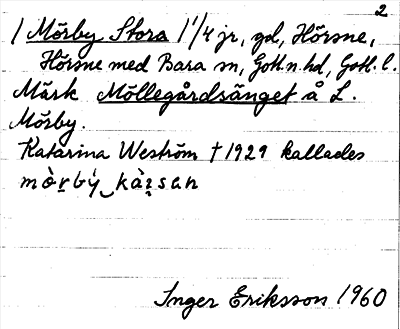 2
/ Mörby Stora 1 1/4 jr, gd, Hörsne,
Hörsne med Bara sn, Gotl.n.hd, Gotl. l.
Märk Möllegårdsänget å L.
Mörby.
Katarina Weström † 1929 kallades
Inger Eriksson 1960